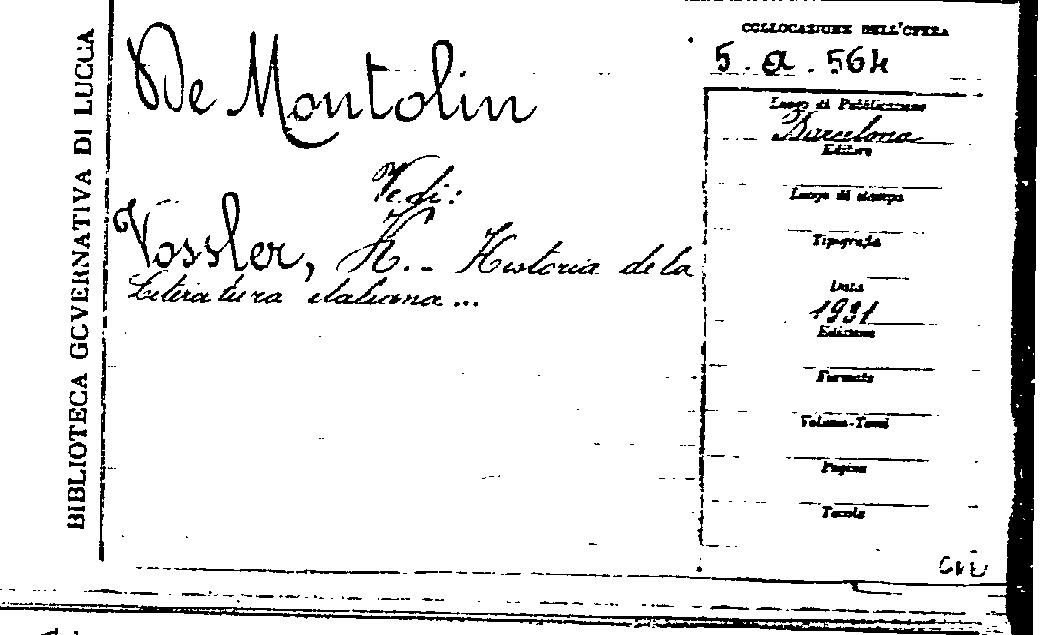 BIBLIOTECA GOVERNATIVA DI LUCCA
De Montolin
Vedi:
Vossler, K. - Historia de la
Literatura italiana ...
COLLOCAZIONE DELL'OPERA
5. a. 564
Luogo di Pubblicazione
Barcelona
Editore
Luogo di stampa
Tipografia
Data
1931
Edizione
Formato
Volume-Tomi
Pagine
Tavole